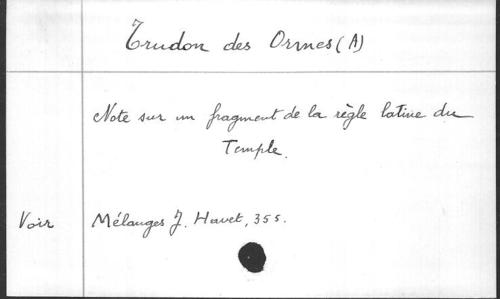 Trudon des Ormes (A)
Note sur un fragment de la règle latine du
Temple.
Voir Mélanges J. Havet, 355.